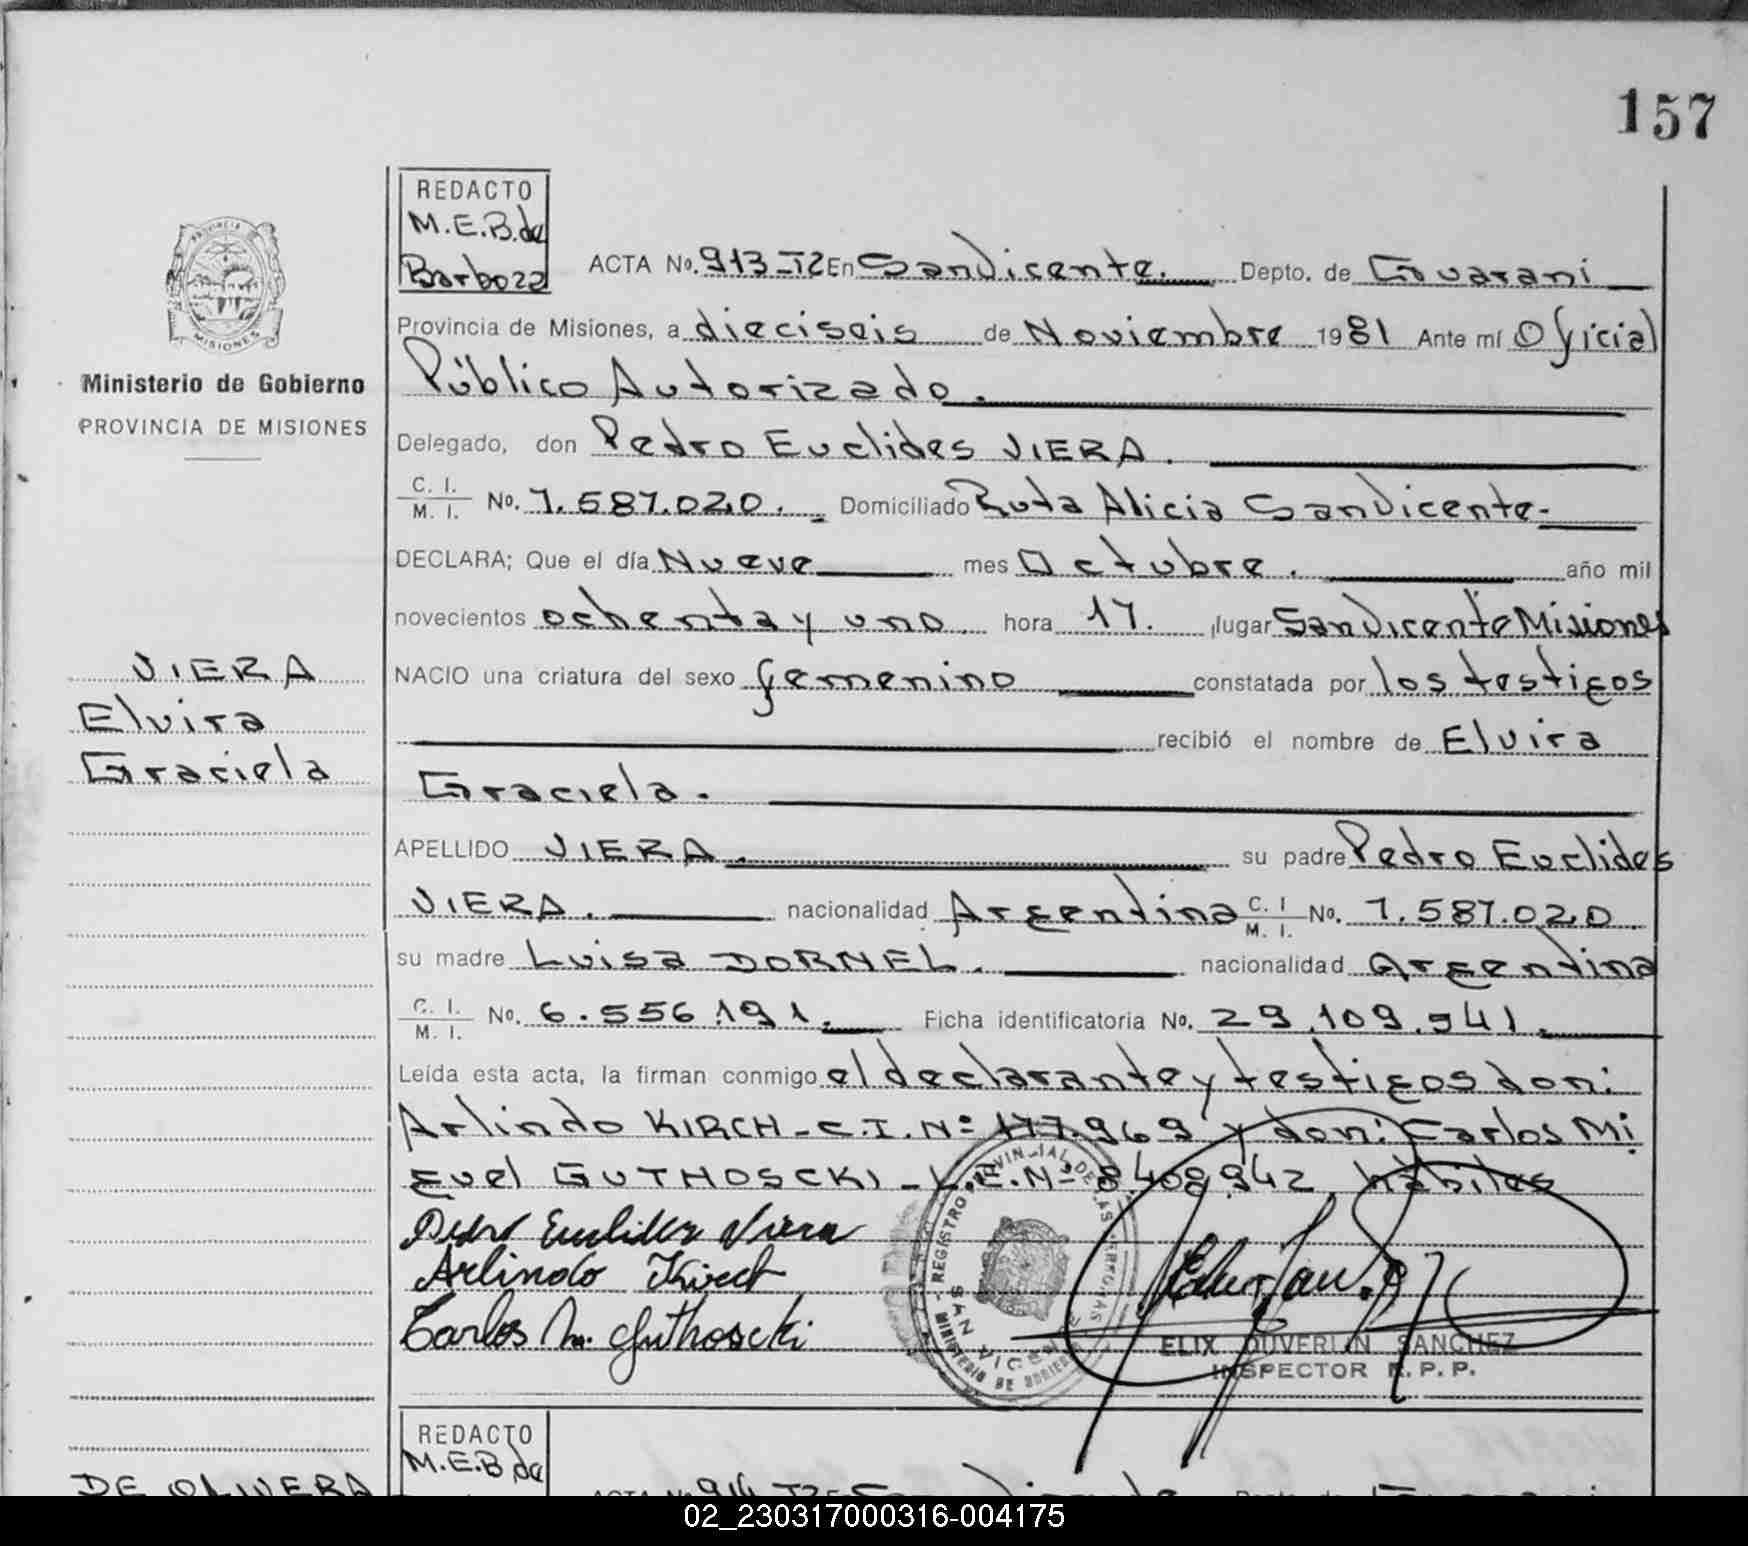 157
REDACTO
M.E.B.de
Barboza
ACTA No. 913-T2 En Sanvicente. Depto. de Guarani
Provincia de Misiones, a dieciseis de Noviembre 1981 Ante mí Oficial
Público Autorizado.
Delegado, don Pedro Euclides VIERA.
C. I. / M. I. No. 7.587.020. Domiciliado Ruta Alicia Sanvicente-
DECLARA; Que el día Nueve mes Octubre. año mil
novecientos ochenta y uno hora 17. lugar Sanvicente Misiones
NACIO una criatura del sexo femenino constatada por los testigos
recibió el nombre de Elvira
Graciela.
APELLIDO VIERA. su padre Pedro Euclides
VIERA. nacionalidad Argentina C. I / M. I. No. 7.587.020
su madre Luisa DORNEL. nacionalidad Argentina
C. I. / M. I. No. 6.556.191. Ficha identificatoria No. 29.109.941.
Leída esta acta, la firman conmigo el declarante y testigos don:
Arlindo KIRCH-C.I.Nº 177.969 y don: Carlos Mi
guel GUTHOSCKI-L.E.Nº 8.408.942 hábiles
Pedro Euclides Viera
Arlindo Kirch
Carlos M. Guthoscki
REGISTRO PROVINCIAL DE LAS PERSONAS
SAN VICENTE
MINISTERIO DE GOBIERNO
ELIX DUVERLIN SANCHEZ
INSPECTOR R.P.P.
PROVINCIA
MISIONES
Ministerio de Gobierno
PROVINCIA DE MISIONES
VIERA
Elvira
Graciela
REDACTO
M.E.B.de
DE OLIVERA
ACTA No. 914-T2 En
02_230317000316-004175